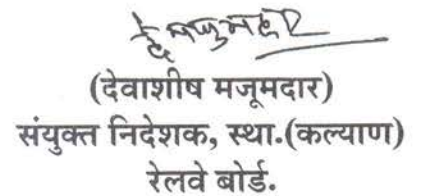 दे मजुमदार
(देवाशीष मजूमदार)
संयुक्त निदेशक, स्था.(कल्याण)
रेलवे बोर्ड.